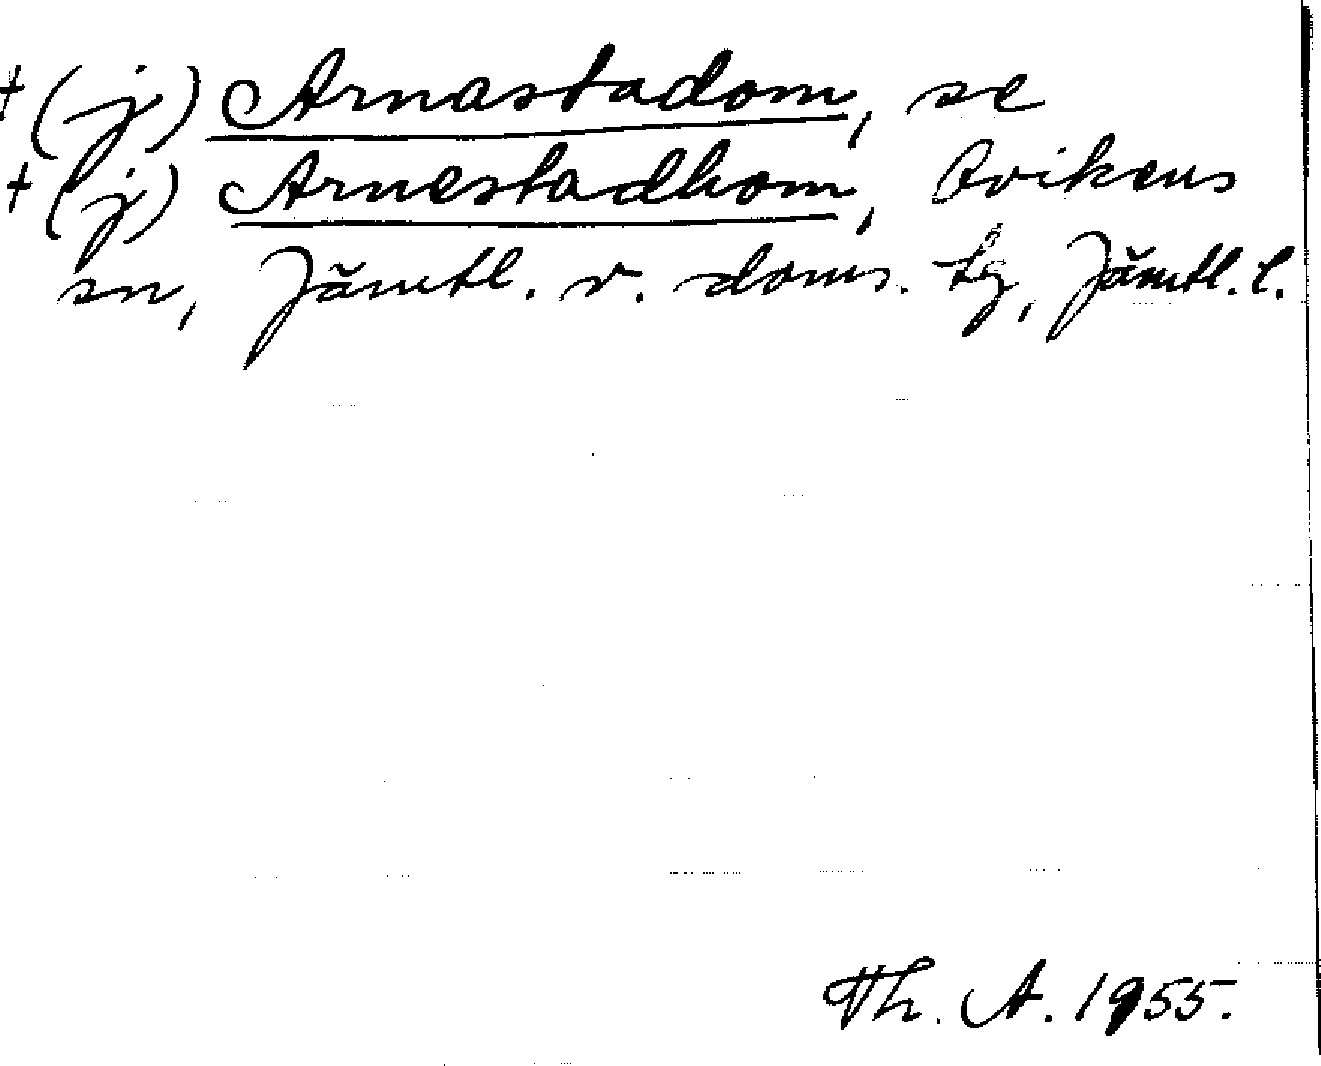 † (j) Arnastadom, se
† (j) Arnestadhom, Ovikens
sn, Jämtl. v. doms. tg, Jämtl. l.
Th. A. 1955.